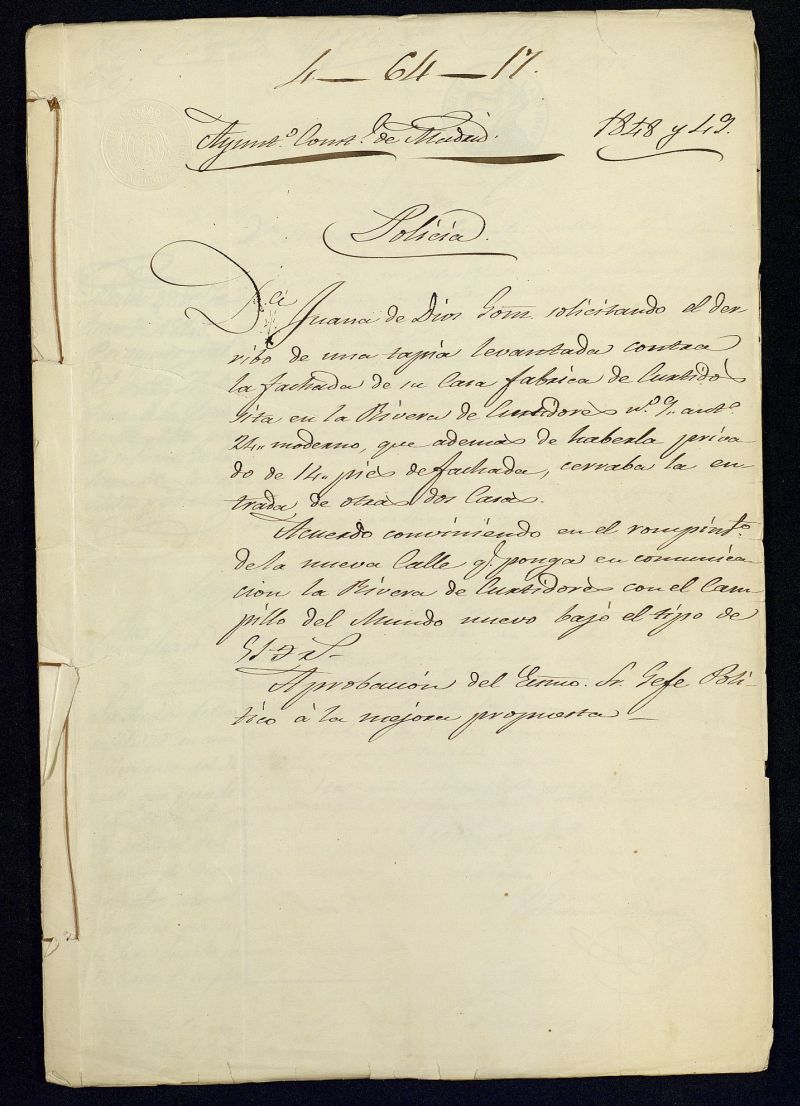 4—64—17.
Ayunt.º Const.l de Madrid. 1848 y 49.
Policía.
D.ª Juana de Dios Gom. solicitando el der
ribo de una tapia levantada contra
la fachada de su Casa fabrica de Curtidos
sita en la Rivera de Curtidores n.º 9.. ant.º
24.. moderno, que ademas de haberla priva
do de 14.. pies de fachada, cerraba la en
trada de otras dos Casas.
Acuerdo conviniendo en el rompim.to
de la nueva Calle q.e ponga en comunica-
cion la Rivera de Curtidores con el Cam-
pillo del Mundo nuevo bajo el tipo de
Aprobacion del Exmo. Sr. Gefe Poli-
tico á la mejora propuesta—